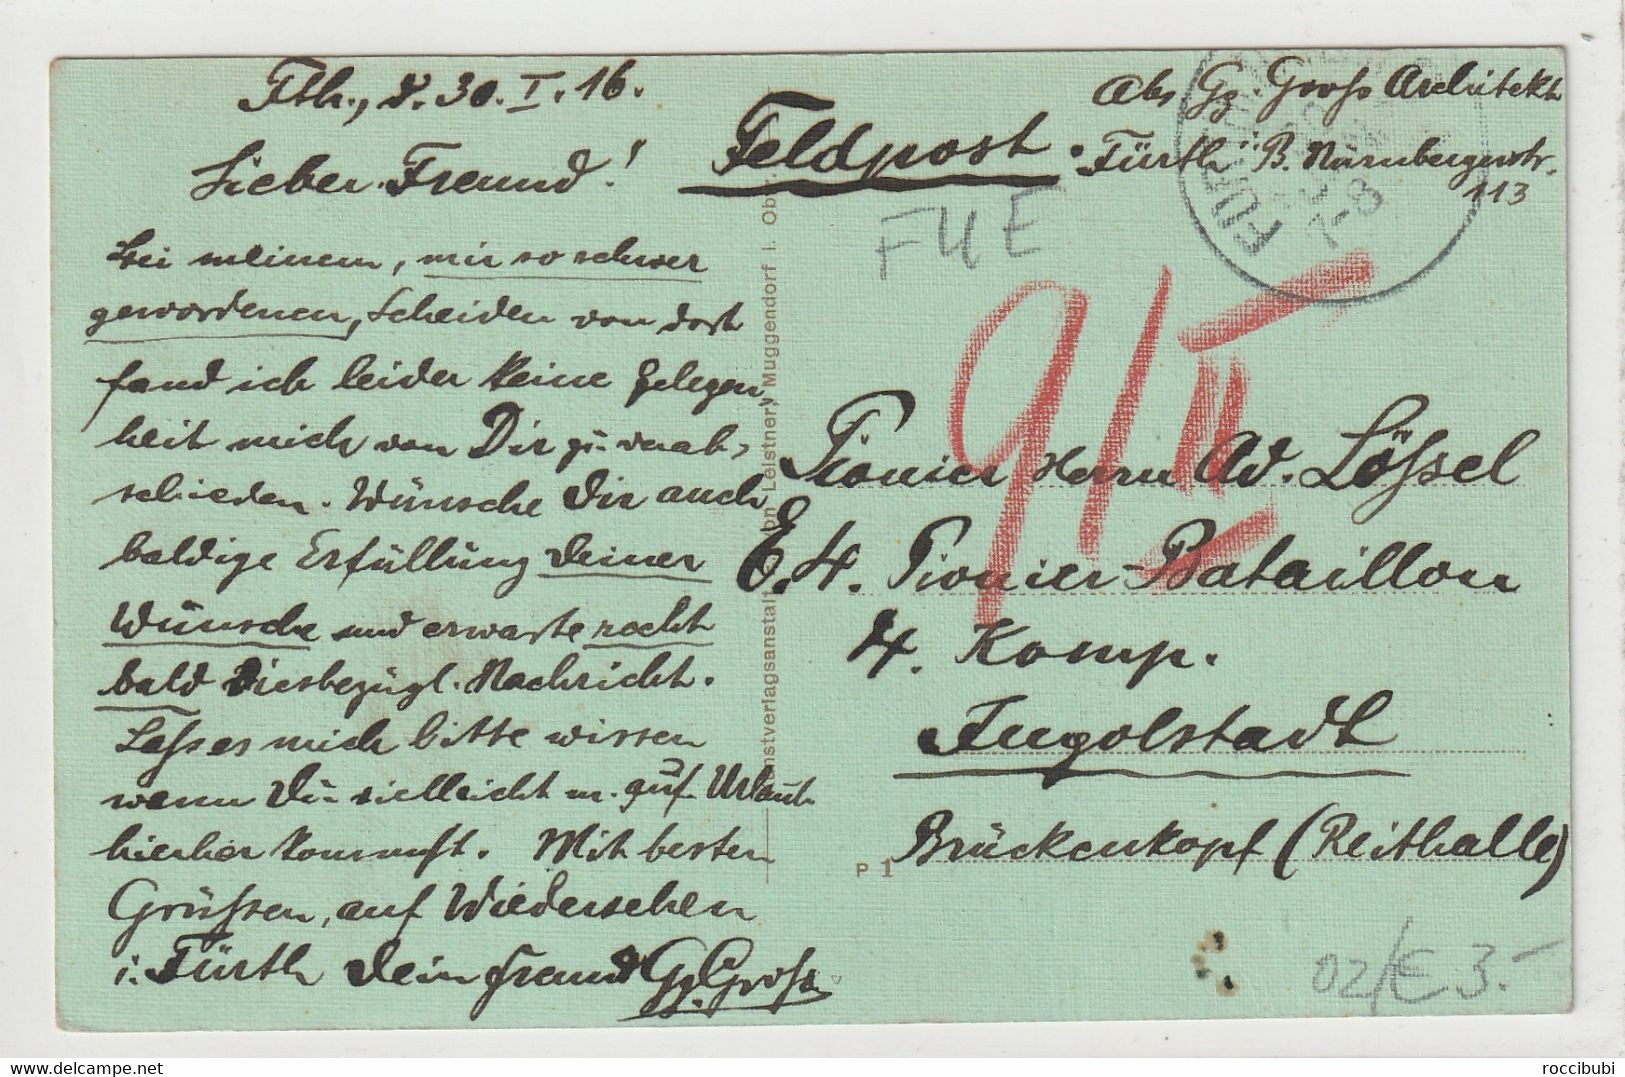 Fth., d. 30. I. 16.
Lieber Freund!
Bei meinem, mir so schwer
gewordenen, Scheiden von dort
fand ich leider keine Gelegen-
heit mich von Dir zu verab-
schieden. Wünsche Dir auch
baldige Erfüllung Deiner
Wünsche und erwarte recht
bald Diesbezügl. Nachricht.
Lasse es mich bitte wissen
wenn Du vielleicht m. auf Urlaub
hierher kommst. Mit besten
Grüßen, auf Wiedersehen
i. Fürth Dein Freund Gg. Groß
Kunstverlagsanstalt von Leistner, Muggendorf i. Ob.
Feldpost.
Abs Gg. Groß Architekt
Fürth i. B. Nürnbergerstr.
113
FÜRTH
7-8
FÜE
91 II
Pionier Herrn Ad. Lößel
E. 4. Pionier-Bataillon
4. Komp.
Ingolstadt
Brückenkopf (Reithalle)
P 1
02/E 3.-
roccibubi